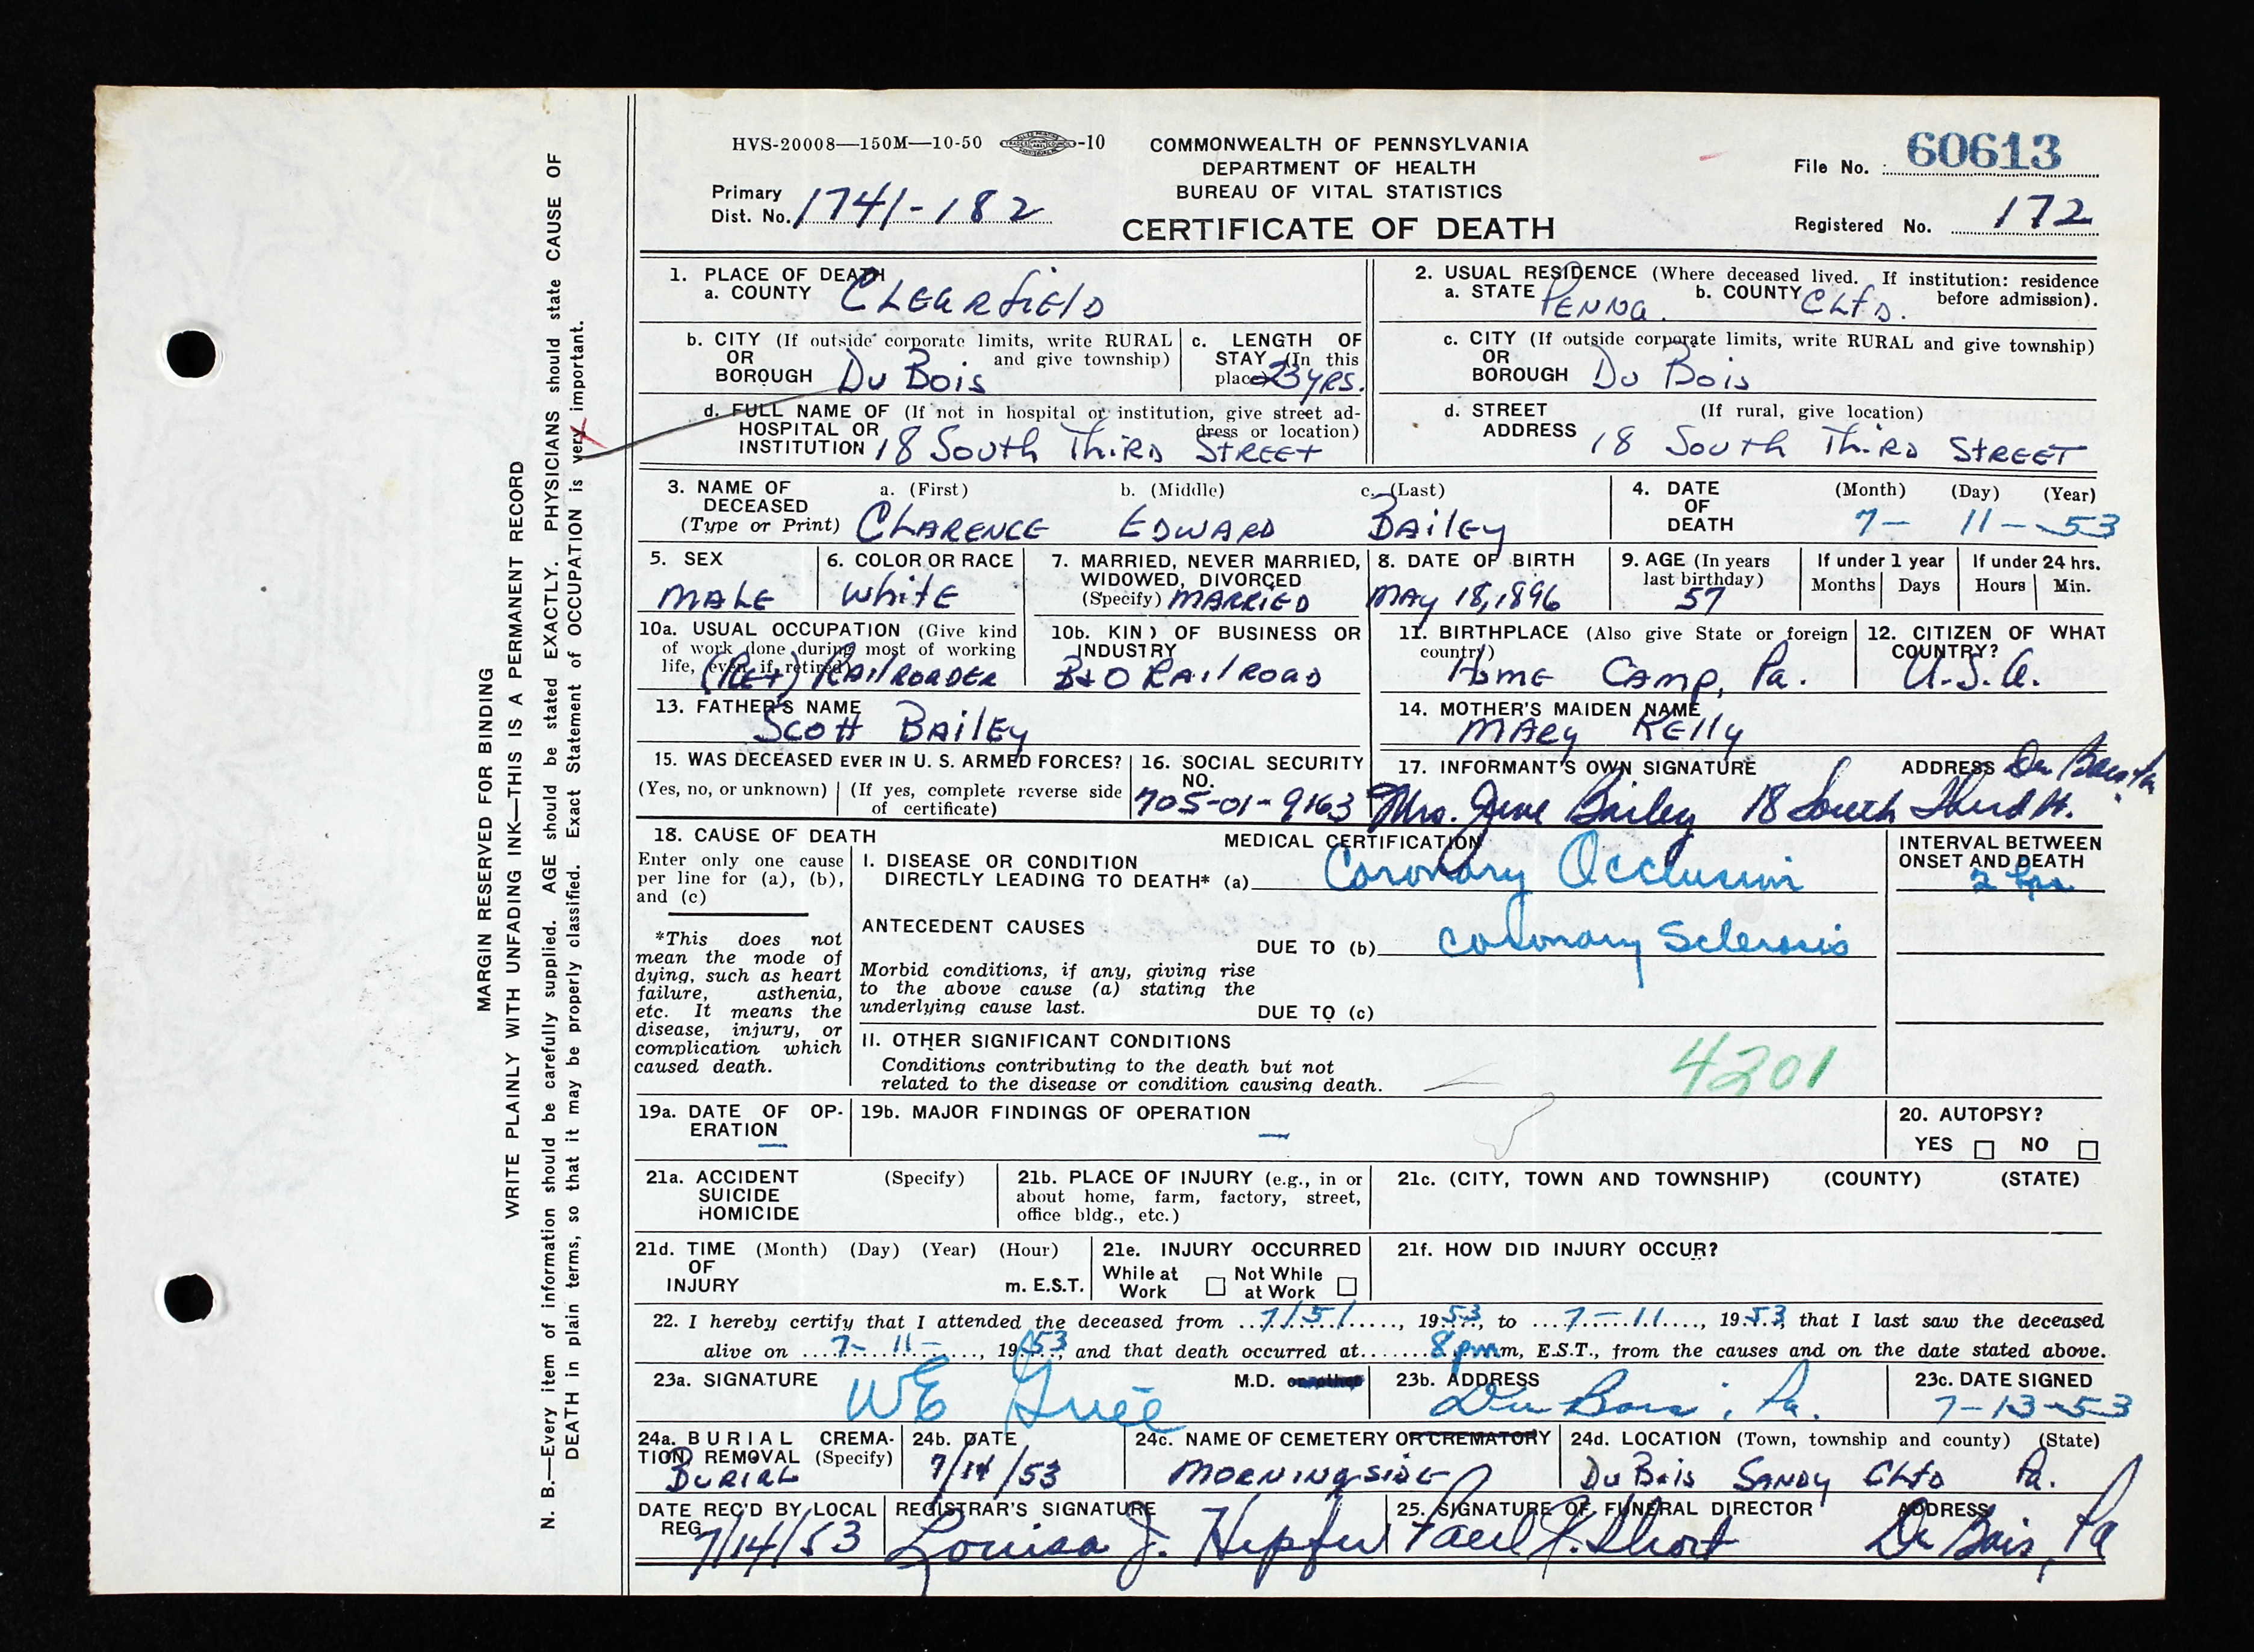 HVS-20008—150M—10-50 -10
COMMONWEALTH OF PENNSYLVANIA
DEPARTMENT OF HEALTH
BUREAU OF VITAL STATISTICS
CERTIFICATE OF DEATH
Primary
Dist. No. 1741-182
File No. 60613
Registered No. 172
MARGIN RESERVED FOR BINDING
WRITE PLAINLY WITH UNFADING INK—THIS IS A PERMANENT RECORD
N. B.—Every item of information should be carefully supplied. AGE should be stated EXACTLY. PHYSICIANS should state CAUSE OF
DEATH in plain terms, so that it may be properly classified. Exact Statement of OCCUPATION is very important.
1. PLACE OF DEATH
a. COUNTY CLEARFIELD
b. CITY (If outside corporate limits, write RURAL
OR and give township)
BOROUGH Du Bois
c. LENGTH OF
STAY (In this
place) 23 YRS.
d. FULL NAME OF (If not in hospital or institution, give street ad-
HOSPITAL OR dress or location)
INSTITUTION 18 South Third STREET
2. USUAL RESIDENCE (Where deceased lived. If institution: residence
a. STATE PENNA. b. COUNTY CLFD. before admission).
c. CITY (If outside corporate limits, write RURAL and give township)
OR
BOROUGH Du Bois
d. STREET (If rural, give location)
ADDRESS 18 South Third STREET
3. NAME OF a. (First) b. (Middle) c. (Last)
DECEASED
(Type or Print) CLARENCE EDWARD BAILEY
4. DATE (Month) (Day) (Year)
OF
DEATH 7- 11- 53
5. SEX
MALE
6. COLOR OR RACE
White
7. MARRIED, NEVER MARRIED,
WIDOWED, DIVORCED
(Specify) MARRIED
8. DATE OF BIRTH
MAY 18, 1896
9. AGE (In years
last birthday)
57
If under 1 year
Months Days
If under 24 hrs.
Hours Min.
10a. USUAL OCCUPATION (Give kind
of work done during most of working
life, even if retired)
(Ret) RAILROADER
10b. KIND OF BUSINESS OR
INDUSTRY
B&O RAILROAD
11. BIRTHPLACE (Also give State or foreign
country)
Home Camp, Pa.
12. CITIZEN OF WHAT
COUNTRY?
U.S.A.
13. FATHER'S NAME
SCOTT BAILEY
14. MOTHER'S MAIDEN NAME
MARY KELLY
15. WAS DECEASED EVER IN U. S. ARMED FORCES?
(Yes, no, or unknown) (If yes, complete reverse side
of certificate)
16. SOCIAL SECURITY
NO.
705-01-9163
17. INFORMANT'S OWN SIGNATURE ADDRESS Du Bois Pa.
Mrs. June Bailey 18 South Third St.
18. CAUSE OF DEATH
Enter only one cause
per line for (a), (b),
and (c)
*This does not
mean the mode of
dying, such as heart
failure, asthenia,
etc. It means the
disease, injury, or
complication which
caused death.
MEDICAL CERTIFICATION
I. DISEASE OR CONDITION
DIRECTLY LEADING TO DEATH* (a) Coronary Occlusion
ANTECEDENT CAUSES
DUE TO (b) Coronary Sclerosis
Morbid conditions, if any, giving rise
to the above cause (a) stating the
underlying cause last.
DUE TO (c)
II. OTHER SIGNIFICANT CONDITIONS
Conditions contributing to the death but not
related to the disease or condition causing death.
4201
INTERVAL BETWEEN
ONSET AND DEATH
2 hrs
19a. DATE OF OP-
ERATION —
19b. MAJOR FINDINGS OF OPERATION
—
20. AUTOPSY?
YES NO
21a. ACCIDENT (Specify)
SUICIDE
HOMICIDE
21b. PLACE OF INJURY (e.g., in or
about home, farm, factory, street,
office bldg., etc.)
21c. (CITY, TOWN AND TOWNSHIP) (COUNTY) (STATE)
21d. TIME (Month) (Day) (Year) (Hour)
OF
INJURY m. E.S.T.
21e. INJURY OCCURRED
While at Not While
Work at Work
21f. HOW DID INJURY OCCUR?
22. I hereby certify that I attended the deceased from 7/5/, 1953, to 7-11, 1953, that I last saw the deceased
alive on 7-11-, 1953, and that death occurred at 8 pm m, E.S.T., from the causes and on the date stated above.
23a. SIGNATURE M.D. or other
WE
23b. ADDRESS
Du Bois, Pa.
23c. DATE SIGNED
7-13-53
24a. BURIAL CREMA-
TION REMOVAL (Specify)
BURIAL
24b. DATE
7/14/53
24c. NAME OF CEMETERY OR CREMATORY
MORNINGSIDE
24d. LOCATION (Town, township and county) (State)
Du Bois SANDY CLFD Pa.
DATE REC'D BY LOCAL
REG. 7/14/53
REGISTRAR'S SIGNATURE
Louisa J.
25. SIGNATURE OF FUNERAL DIRECTOR ADDRESS
Paul J. Short Du Bois, Pa